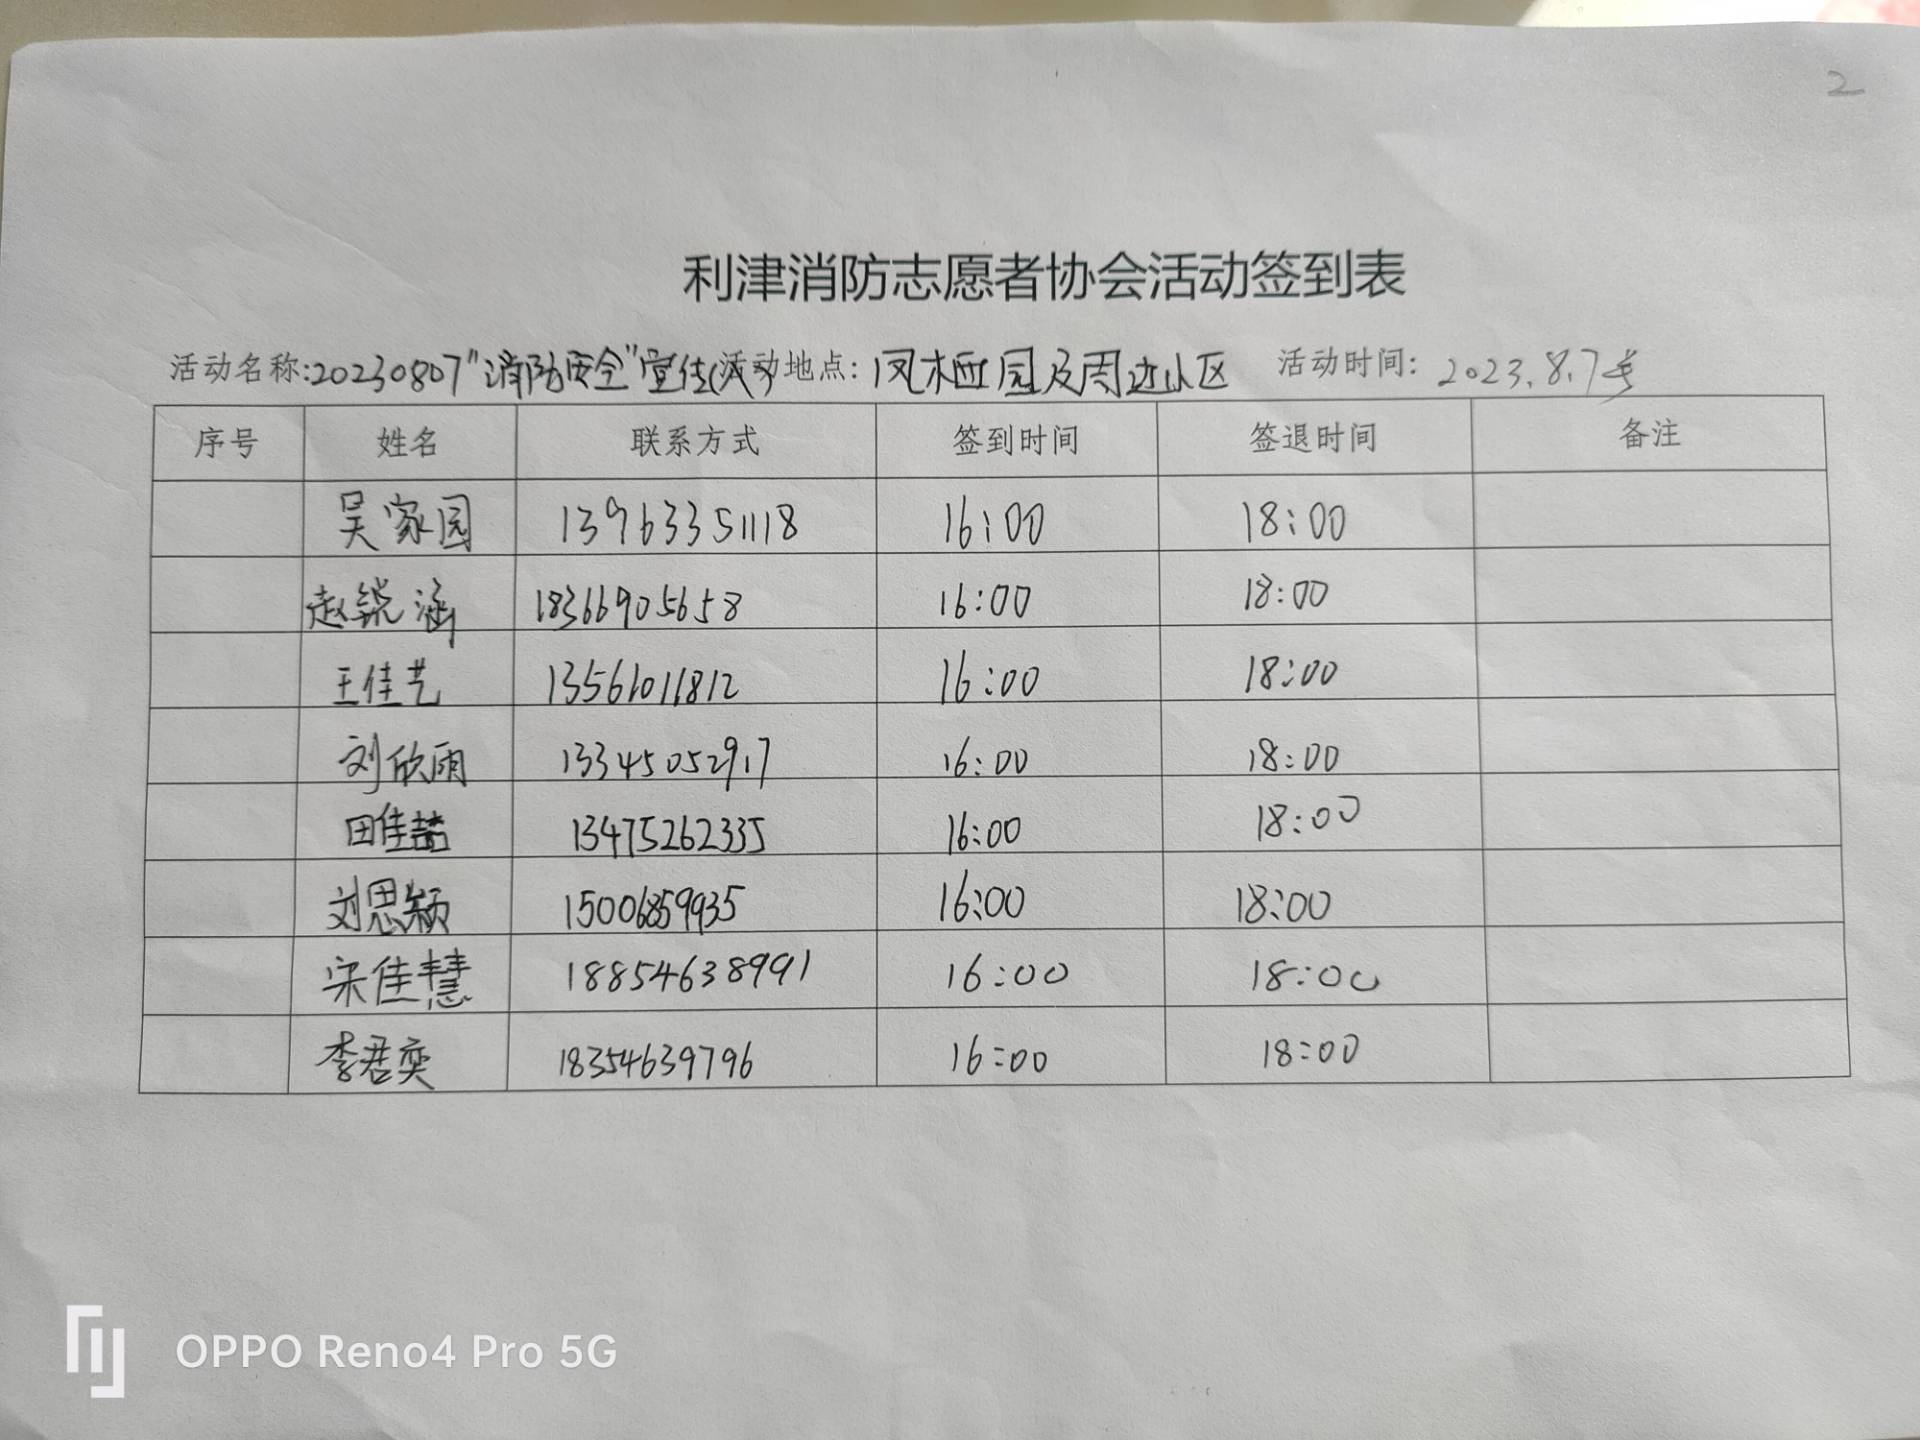 2
利津消防志愿者协会活动签到表
活动名称:20230807"消防安全"宣传(次) 活动地点:凤栖园及周边小区 活动时间:2023.8.7号
序号 姓名 联系方式 签到时间 签退时间 备注
吴家园 13963351118 16:00 18:00
赵锐涵 18366905658 16:00 18:00
王佳艺 13561011812 16:00 18:00
刘欣雨 13345052917 16:00 18:00
田佳喆 13475262335 16:00 18:00
刘思颖 15006859935 16:00 18:00
宋佳慧 18854638991 16:00 18:00
李君奕 18354639796 16:00 18:00
OPPO Reno4 Pro 5G